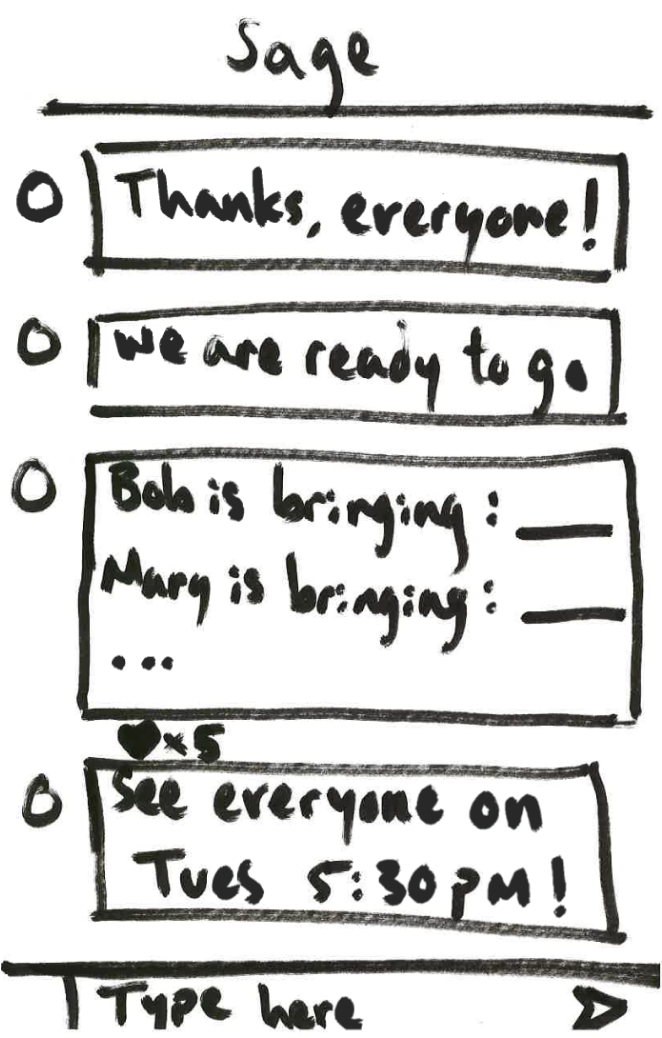 Sage
Thanks, everyone!
we are ready to go
Bob is bringing: ___
Mary is bringing: ___
...
♥×5
See everyone on
Tues 5:30pm!
Type here